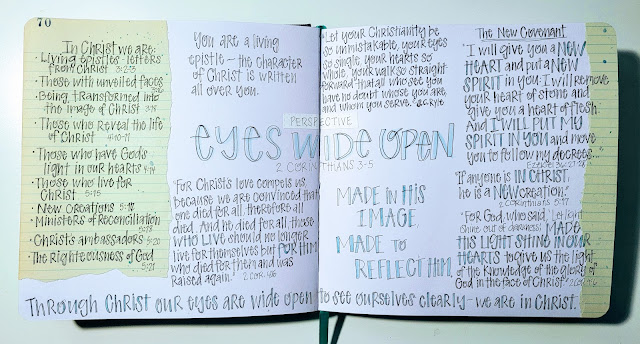 70
In Christ we are:
• Living epistles - letters
from Christ 3:2-3
• Those with unveiled faces
• Being transformed into
the image of Christ
• Those who reveal the life
of Christ 4:10-11
• Those who have God's
light in our hearts
• Those who live for
Christ 5:15
• New Creations 5:17
• Ministers of Reconciliation
5:18
• Christ's ambassadors 5:20
• The Righteousness of God
5:21
You are a living
epistle - the character
of Christ is written
all over you.
PERSPECTIVE
eyes WIDE OPEN
2 CORINTHIANS 3-5
"For Christ's love compels us,
because we are convinced that
one died for all, therefore all
died. And he died for all, those
WHO LIVE should no longer
live for themselves but FOR HIM
who died for them and was
raised again."
2 Cor.
"Let your Christianity be
so unmistakable, your eyes
so single, your hearts so
whole, your walk so straight
forward that all who see you
have no doubt whose you are,
and whom you serve."
MADE IN HIS
IMAGE,
MADE TO
REFLECT HIM.
The New Covenant
"I will give you a NEW
HEART and put a NEW
SPIRIT in you; I will remove
your heart of stone and
give you a heart of flesh.
And I WILL PUT MY
SPIRIT IN YOU and move
you to follow my decrees..."
Ezekiel 36:27-28
"If anyone is IN CHRIST,
he is a NEW creation."
2 Corinthians 5:17
"For God, who said, 'Let light
shine out of darkness,' MADE
HIS LIGHT SHINE IN OUR
HEARTS to give us the light
of the knowledge of the glory of
God in the face of Christ."
Through CHRIST our eyes are wide open to see ourselves clearly - we are in Christ.